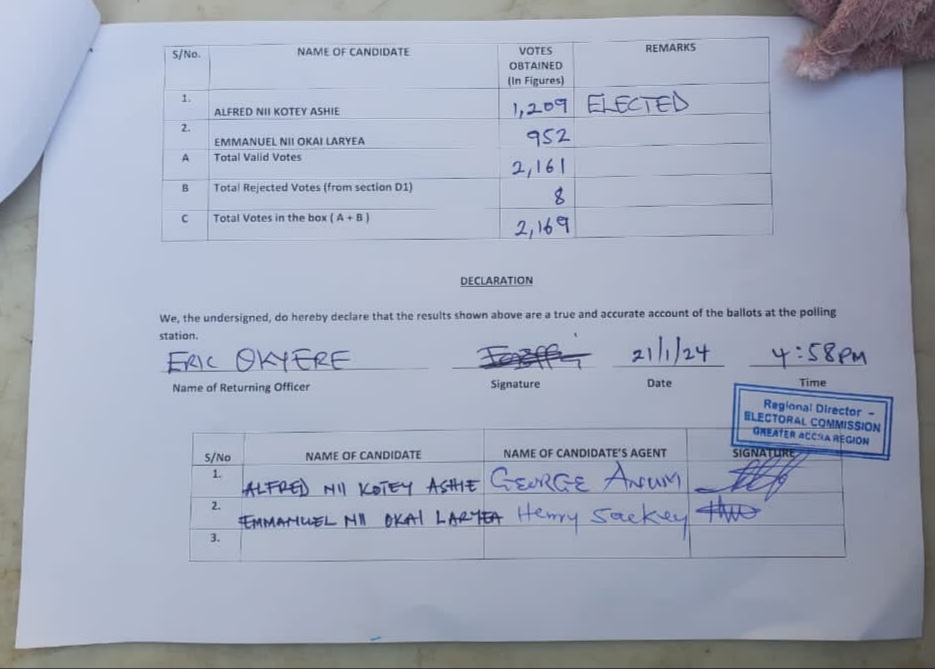 S/No. NAME OF CANDIDATE VOTES OBTAINED (In Figures) REMARKS
1. ALFRED NII KOTEY ASHIE 1,209 ELECTED
2. EMMANUEL NII OKAI LARYEA 952
A Total Valid Votes 2,161
B Total Rejected Votes (from section D1) 8
C Total Votes in the box ( A + B ) 2,169
DECLARATION
We, the undersigned, do hereby declare that the results shown above are a true and accurate account of the ballots at the polling
station.
ERIC OKYERE 21/1/24 4:58PM
Name of Returning Officer Signature Date Time
Regional Director -
ELECTORAL COMMISSION
GREATER ACCRA REGION
S/No NAME OF CANDIDATE NAME OF CANDIDATE'S AGENT SIGNATURE
1. ALFRED NII KOTEY ASHIE GEORGE ANUM
2. EMMANUEL NII OKAI LARYEA Henry Sackey
3.